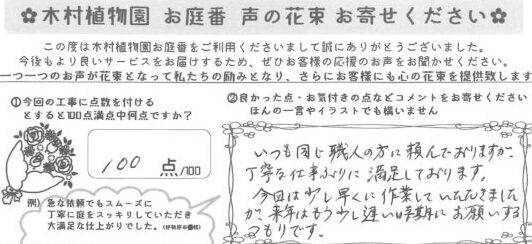 ✿木村植物園 お庭番 声の花束 お寄せください✿
この度は木村植物園お庭番をご利用くださいまして誠にありがとうございました。
今後もより良いサービスをお届けするため、ぜひお客様の応援のお声をお聞かせください。
一つ一つのお声が花束となって私たちの励みとなり、さらにお客様にも心の花束を提供致します
①今回の工事に点数を付ける
とすると100点満点中何点ですか?
100 点/100
例) 急な依頼でもスムーズに
丁寧に庭をスッキリしていただき
大満足な仕上がりでした。
②良かった点・お気付きの点などコメントをお寄せください
ほんの一言やイラストでも構いません
いつも同じ職人の方に頼んでおりますが、
丁寧な仕事ぶりに満足しております。
今回は少し早くに作業していただきました
が、来年はもう少し遅い時期にお願いする
つもりです。